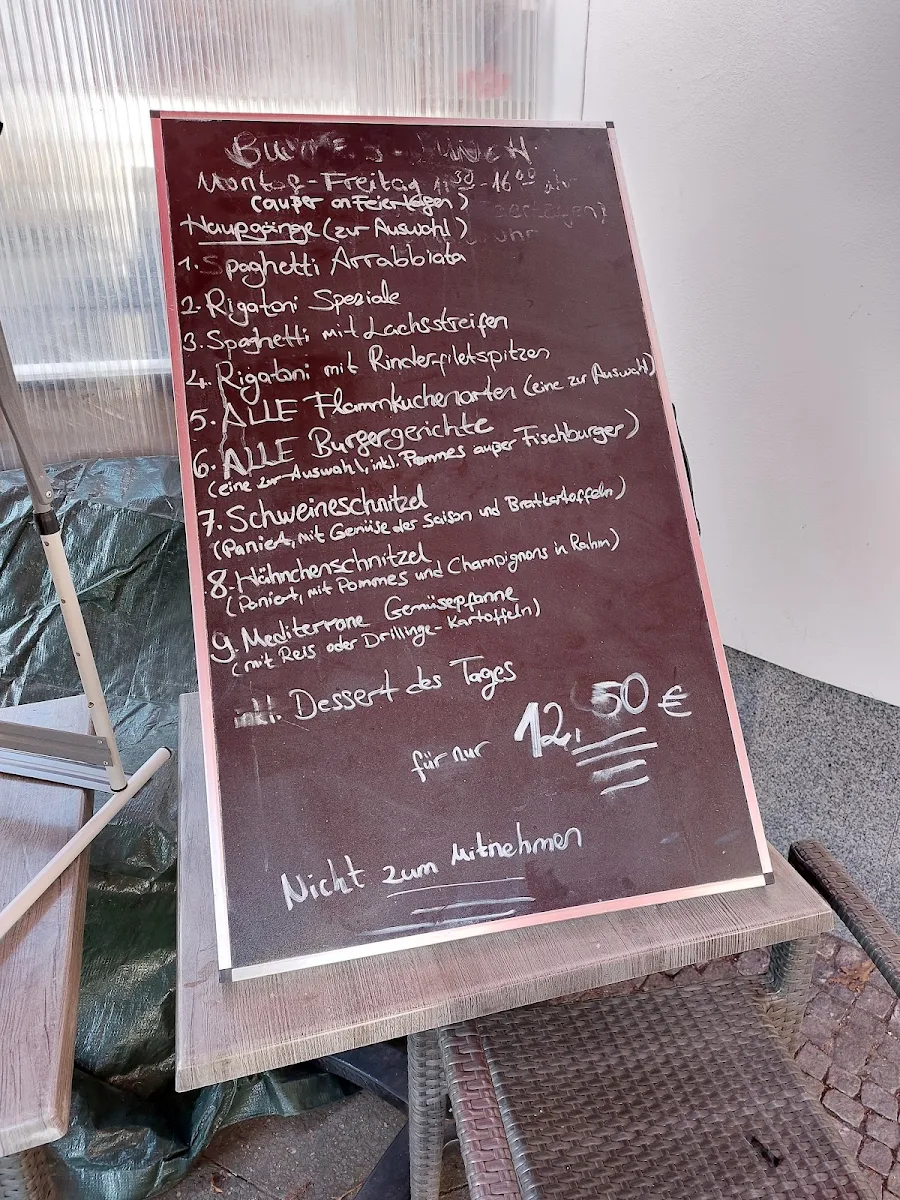 Montag-Freitag 11³⁰-16⁰⁰ uhr
(außer an Feiertagen)
Haupgänge (zur Auswahl)
1. Spaghetti Arrabbiata
2. Rigatoni Speziale
3. Spaghetti mit Lachsstreifen
4. Rigatoni mit Rinderfiletspitzen
5. ALLE Flammkuchenarten (eine zur Auswahl)
6. ALLE Burgergerichte
(eine zur Auswahl, inkl. Pommes außer Fischburger)
7. Schweineschnitzel
(Paniert, mit Gemüse der Saison und Bratkartoffeln)
8. Hähnchenschnitzel
(Paniert, mit Pommes und Champignons in Rahm)
9. Mediterrane Gemüsepfanne
(mit Reis oder Drillinge-Kartoffeln)
inkl. Dessert des Tages
für nur 12,50 €
Nicht zum Mitnehmen